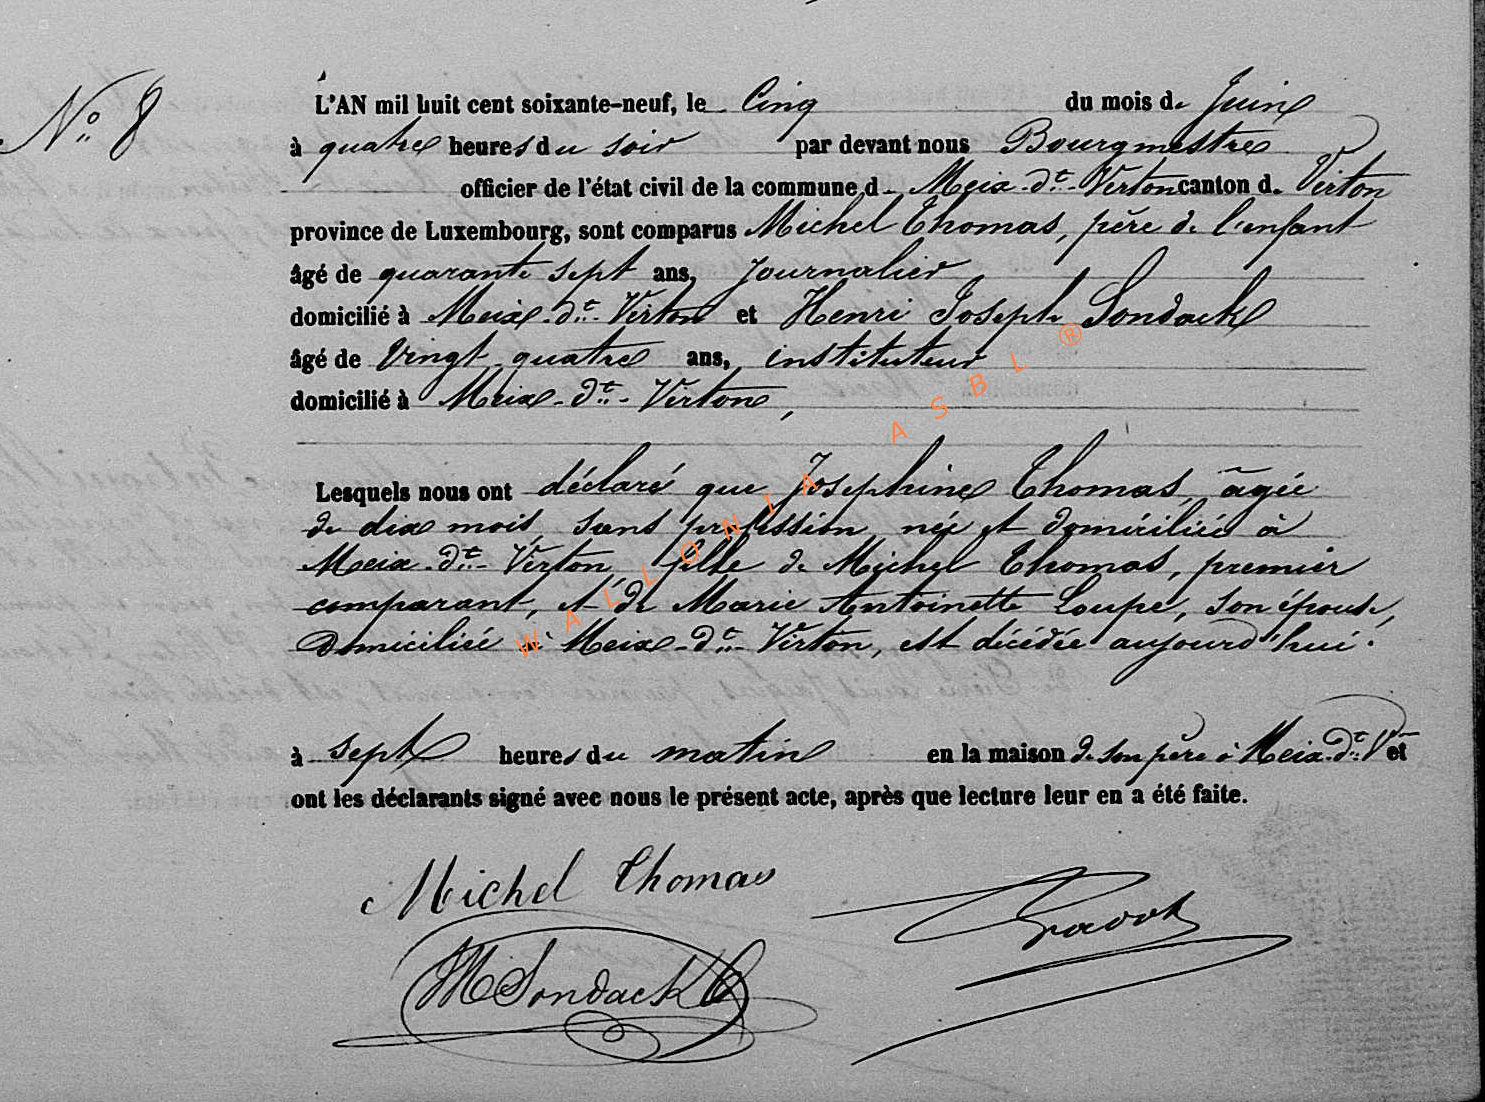 No 8
L'AN mil huit cent soixante-neuf, le Cinq du mois de Juin
à quatre heures du soir par devant nous Bourgmestre
officier de l'état civil de la commune d Meix-dt-Virton canton de Virton
province de Luxembourg, sont comparus Michel Thomas, père de l'enfant
âgé de quarante sept ans, journalier
domicilié à Meix-dt-Virton et Henri Joseph Sondack
âgé de vingt quatre ans, instituteur
domicilié à Meix-dt-Virton,
Lesquels nous ont déclaré que Josephine Thomas, âgée
de dix mois, sans profession, née et domiciliée à
Meix-dt-Virton, fille de Michel Thomas, premier
comparant, et de Marie Antoinette Loupe, son épouse,
domiciliée à Meix-dt-Virton, est décédée aujourd'hui
à sept heures du matin en la maison de son père à Meix-dt-Vn et
ont les déclarants signé avec nous le présent acte, après que lecture leur en a été faite.
Michel Thomas
Sondack
WALLONIA ASBL ®